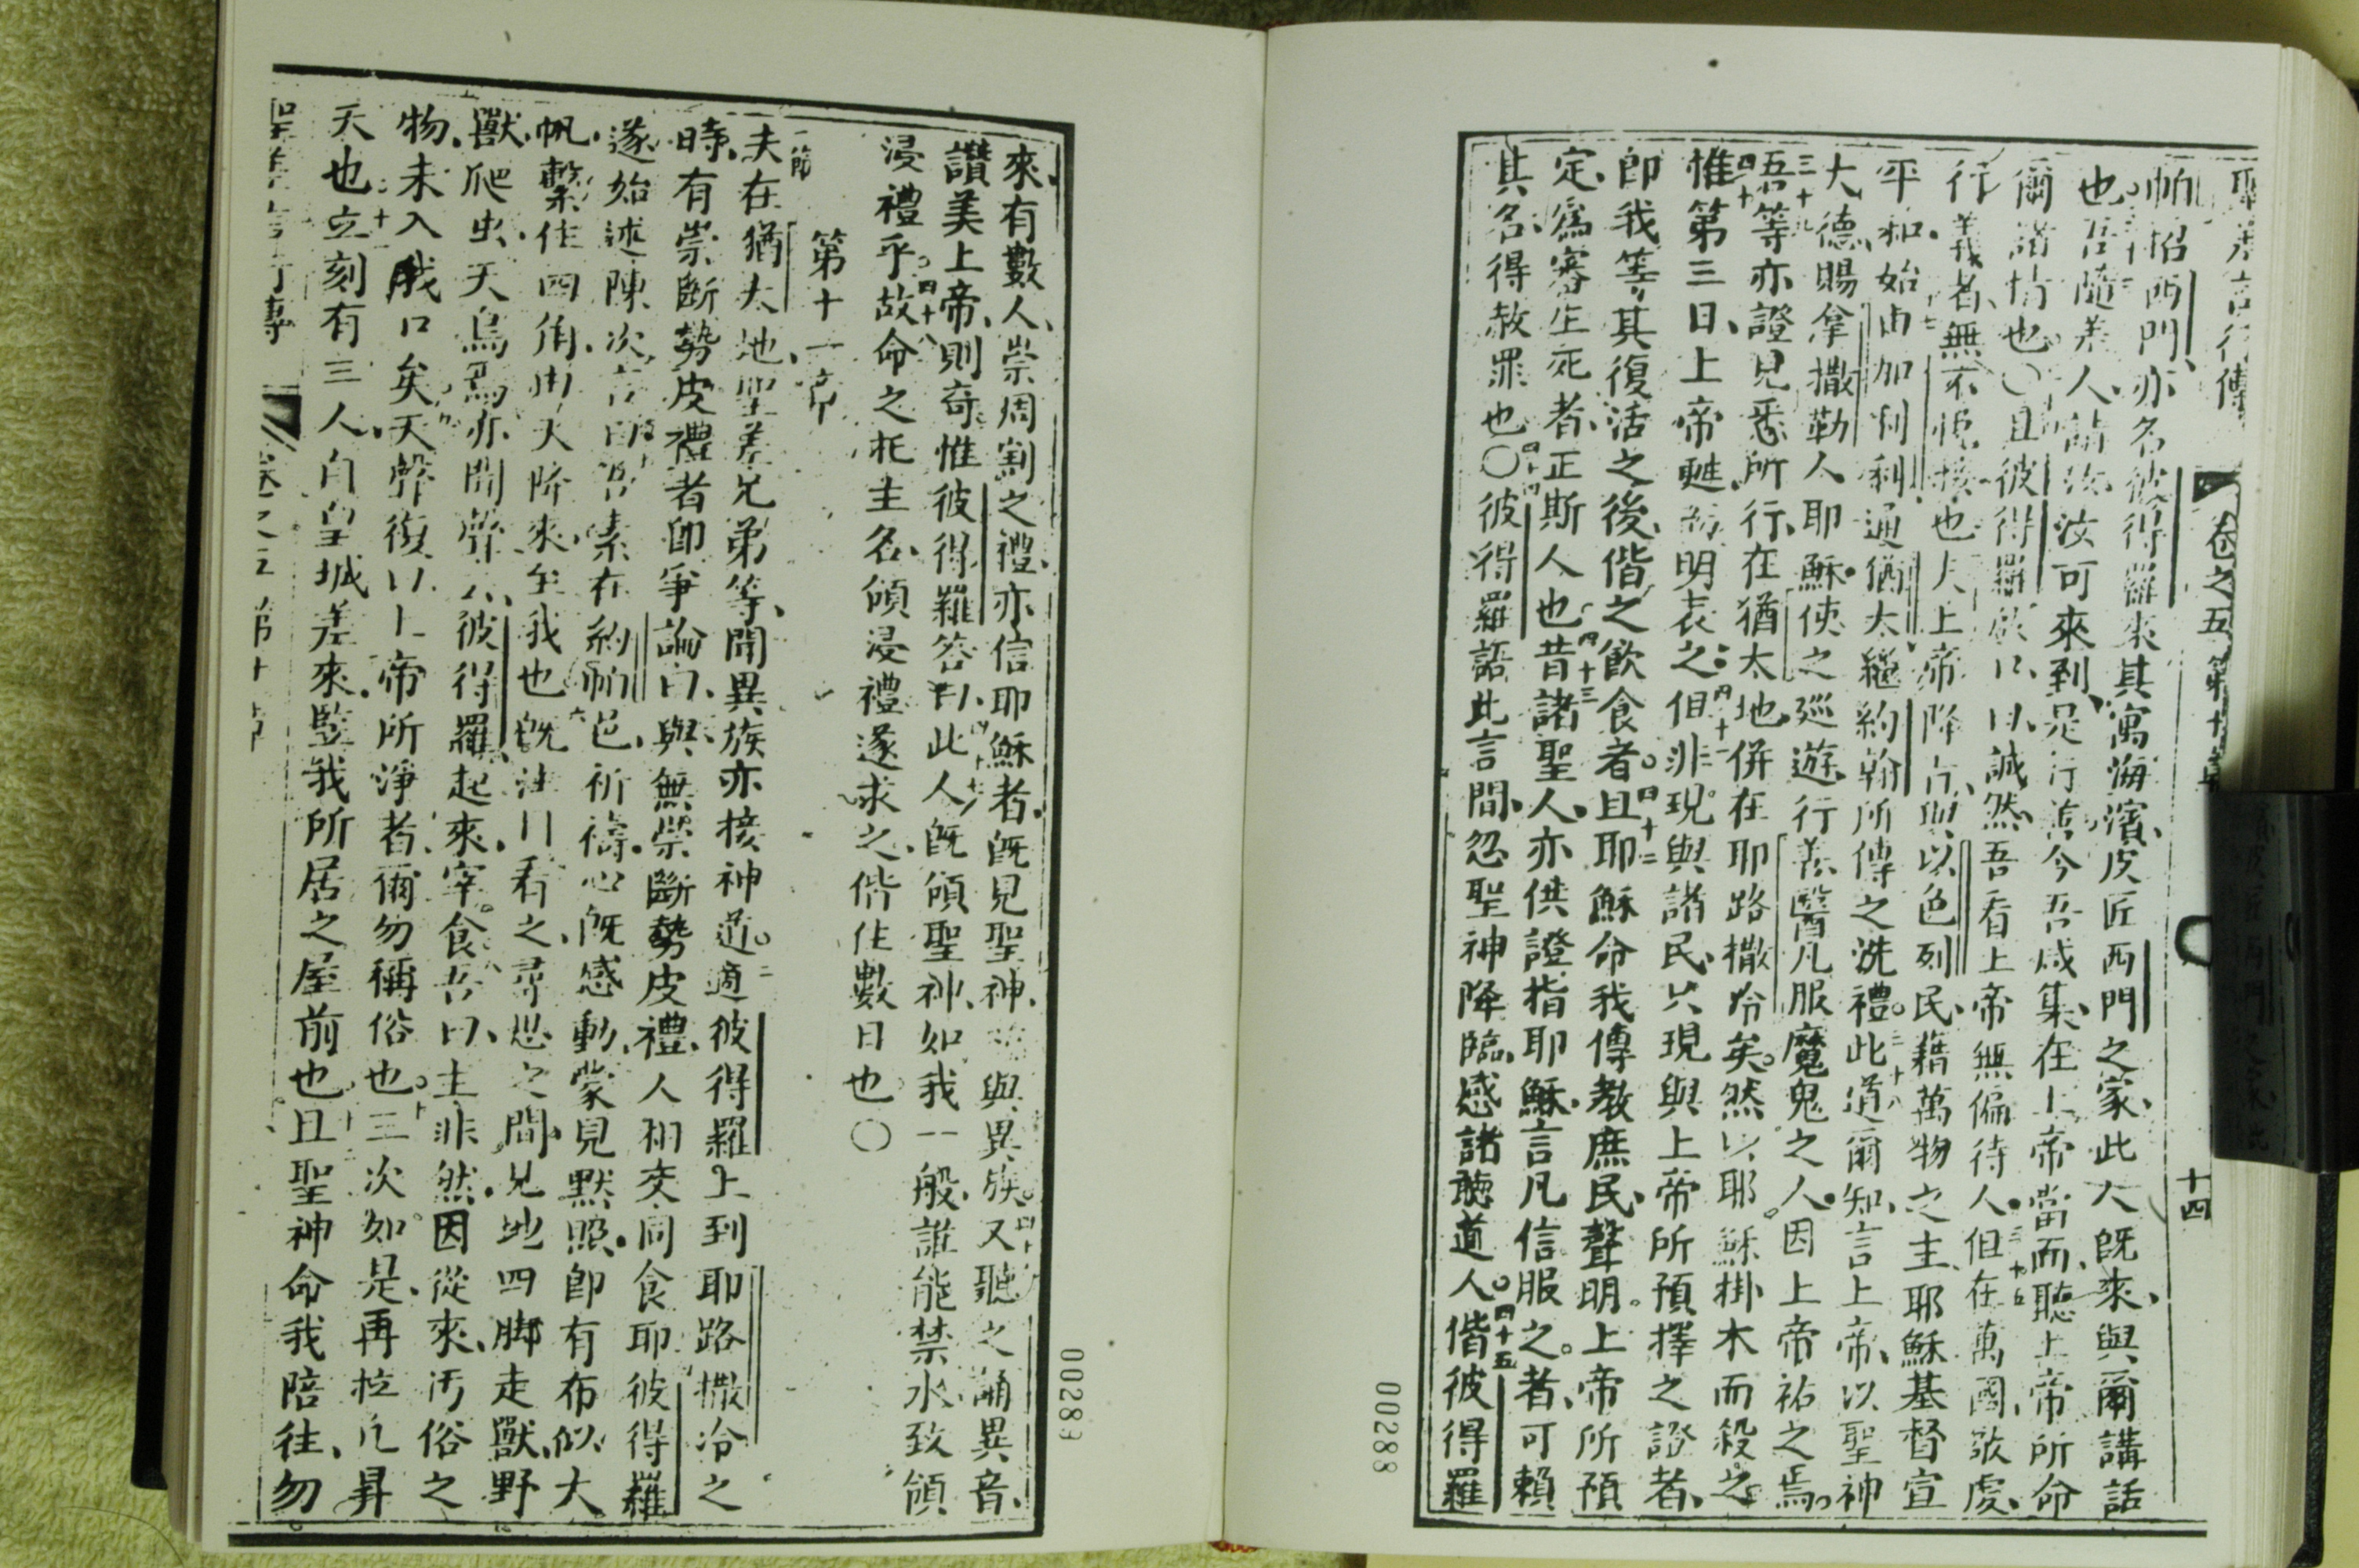 聖差言行傳 卷之五 第十章 十四
帕招西門亦名彼得羅來其寓海濱皮匠西門之家此人既來與爾講話
也吾隨差人請汝汝可來到是行善今吾咸集在上帝當面聽上帝所命
爾諸情也〇且彼得羅啟口曰誠然吾看上帝無偏待人三十五但在萬國敬虔
行義者無不悅接也夫上帝降言與以色列民藉萬物之主耶穌基督宣
平和始由加利利通猶太繼約翰所傳之洗禮三十八此道爾知言上帝以聖神
大德賜拿撒勒人耶穌使之巡遊行善醫凡服魔鬼之人因上帝祐之焉
三十九吾等亦證見悉所行在猶太地併在耶路撒冷矣然以耶穌掛木而殺之
四十惟第三日上帝甦而明表之四十一但非現與諸民只現與上帝所預擇之證者
即我等其復活之後偕之飲食者四十二且耶穌命我傳教庶民聲明上帝所預
定為審生死者正斯人也四十三昔諸聖人亦供證指耶穌言凡信服之者可賴
其名得赦罪也〇四十四彼得羅語此言間忽聖神降臨感諸聽道人四十五偕彼得羅
00288
來有數人崇周割之禮亦信耶穌者既見聖神與異族又聽之誦異音
讚美上帝則奇惟彼得羅答曰四十七此人既領聖神如我一般誰能禁水致領
浸禮乎四十八故命之托主名領浸禮遂求之偕住數日也〇
第十一章
一節夫在猶太地聖差兄弟等聞異族亦接神道二適彼得羅上到耶路撒冷之
時有崇斷勢皮禮者即爭論曰與無崇斷勢皮禮人相交同食耶彼得羅
遂始述陳次言曰吾素在約帕邑祈禱心既感動蒙見默照即有布似大
帆繫住四角由天降來至我也六既注目看之尋思之間見地四脚走獸野
獸爬虫天鳥焉亦聞聲云彼得羅起來宰食吾曰主非然因從來汚俗之
物未入我口矣天聲復以上帝所淨者爾勿稱俗也十三次如是再拉凡昇
天也十一立刻有三人自皇城差來監我所居之屋前也且聖神命我陪往勿
聖差言行傳 卷之五 第十章
00289